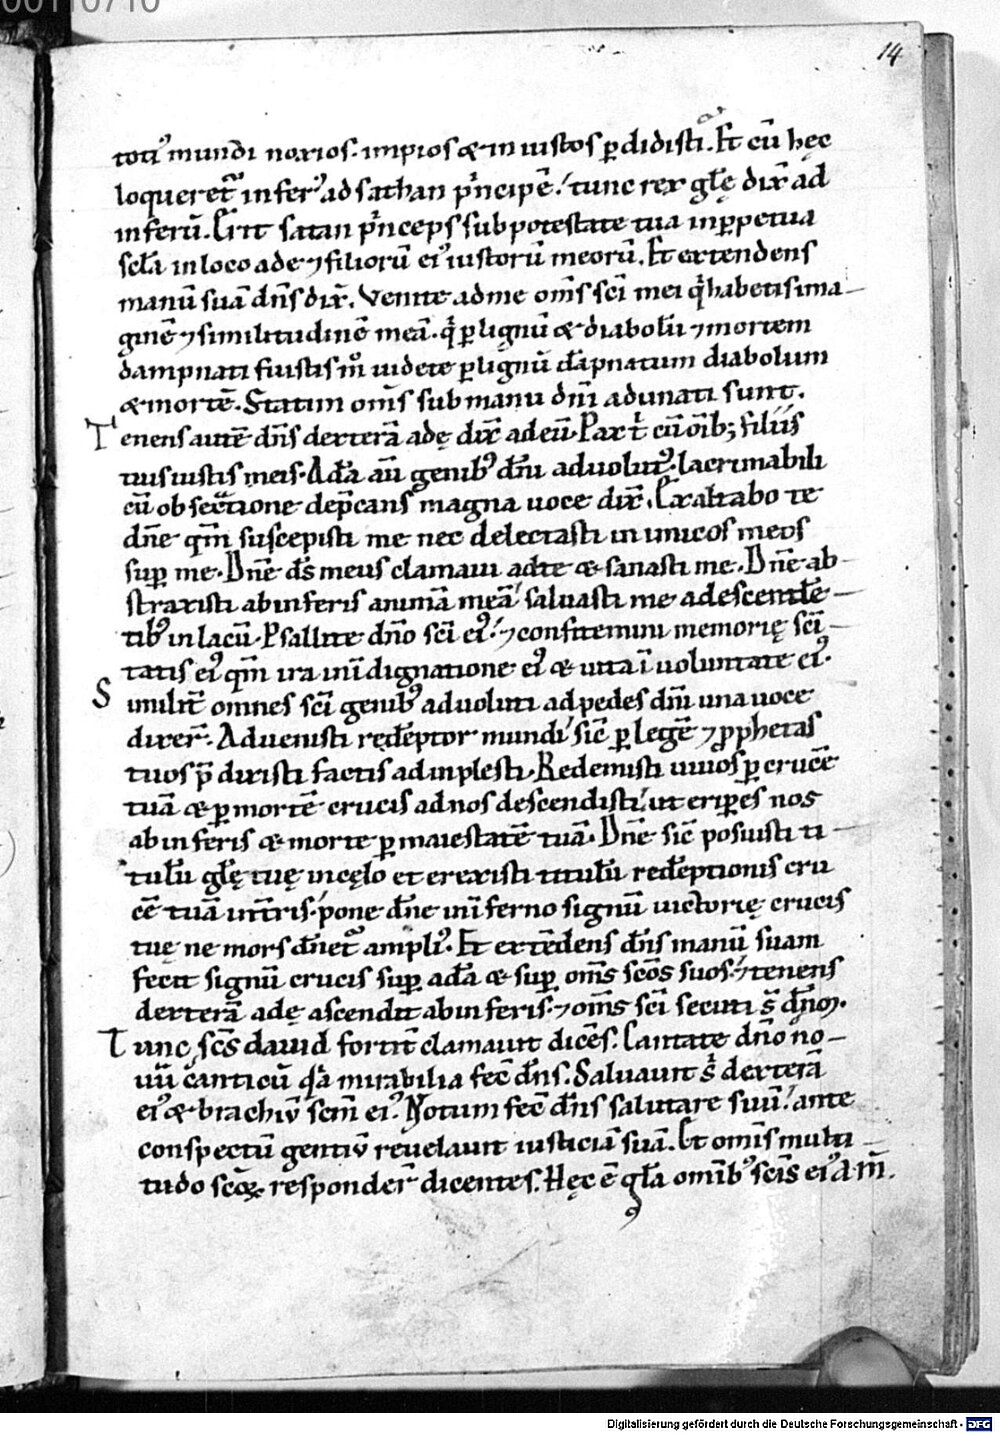 14
toti᷒ mundi noxios. impios & in iustos ꝑdidisti. Et cū hęc
loqueret᷑ infer᷒ ad sathan p̓ncipē.᷄ tunc rex gl̄ę dix̄ ad
inferū. Erit satan p̓nceps sub potestate tua inꝑpetua
sc̄la in loco ade ⁊ filiorū ei᷒ iustorū meorū. Et extendens
manū suā dn̄s dix̄. Venite ad me om̄s sc̄i mei q̓ habetis ima-
ginē ⁊ similitudinē meā. q̓ ꝑ lignū & diabolū ⁊ mortem
dampnati fuistis m̊ uidete ꝑ lignū dāpnatum diabolum
& mortē. Statim om̄s sub manu dn̄i adunati sunt.
Tenens autē dn̄s dexterā adę dix̄ ad eū. Pax t̓ cū oīb; filiis
tuis iustis meis. Adā au̅ genib᷒ dn̄i aduolut᷒. lacrimabili
cū obsecratione dep̄cans magna uoce dix̄. Exaltabo te
dn̄e qm̄ suscepisti me nec delectasti inimicos meos
suꝑ me. Dn̄e ds̄ meus clamaui ad te & sanasti me. Dn̄e ab-
straxisti ab inferis animā meā᷄ saluasti me a descendē-
tib᷒ in lacū. Psallite dn̄o sc̄i ei᷒.᷄ ⁊ confitemini memorię sc̄i-
tatis ei᷒ qm̄ ira in īdignatione ei᷒ & uita ī uoluntate ei᷒.
Similit̄ omnes sc̄i genib᷒ aduoluti ad pedes dn̄i una uoce
dixer̄. Aduenisti redēptor mundi᷄ sic̄ ꝑ legē ⁊ ꝓphetas
tuos p̄dixisti factis adinplesti. Redemisti uiuos ꝑ crucē
tuā & ꝑ mortē crucis ad nos descendisti᷄ ut eriꝑes nos
ab inferis & morte ꝑ maiestatē tuā. Dn̄e sic̄ posuisti ti-
tulū gl̄ę tuę in cęlo et erexisti titulū redēptionis cru
cē tuā in tr̄is.᷄ pone dn̄e in īferno signū uictorię crucis
tuę ne mors dn̄et᷑ ampli᷒. Et extēdens dn̄s manū suam
fecit signū crucis suꝑ adā & suꝑ om̄s sc̄os suos.᷄ ⁊ tenens
dexterā adę ascendit ab inferis. ⁊ om̄s sc̄i secuti s̄ dn̄om.
Tunc sc̄s dauid fortit̄ clamauit dicēs. Cantate dn̄o no-
uū canticū q̓a mirabilia fec̄ dn̄s. Saluauit s̓ dexterā
ei᷒ & brachiū sc̄m ei᷒. Notum fec̄ dn̄s salutare suū.᷄ ante
conspectū gentiū reuelauit iusticiā suā. Et omīs multi-
tudo sc̄oꝝ responder̄ dicentes. Hęc ē gl̄a omīb᷒ sc̄is ei᷒ am̄.
Digitalisierung gefördert durch die Deutsche Forschungsgemeinschaft - DFG